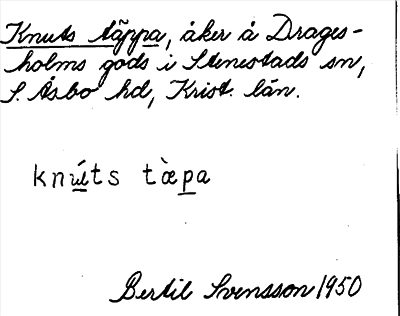 Knuts täppa, åker å Drages-
holms gods i Stenestads sn,
S. Åsbo hd, Krist. län.
knú̲ts tæ̀p̲a
Bertil Svensson 1950